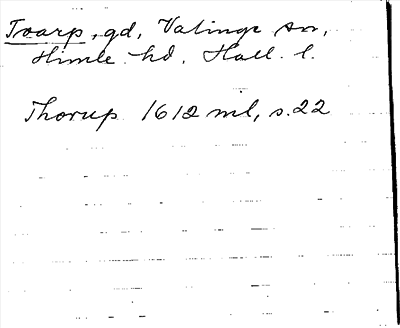 Toarp, gd, Valinge sn,
Himle hd. Hall. l.
Thorup 1612 ml, s. 22